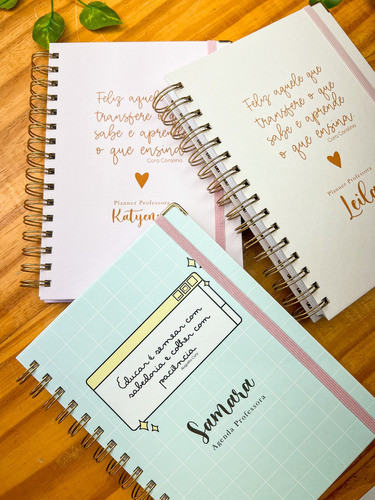 Feliz aquele
transfere o
sabe e aprende
o que ensina
Cora Coralina
Planner Professora
Feliz aquele que
transfere o que
sabe e aprende
o que ensina
Cora Coralina
Planner Professora
Leila
Educar é semear com
sabedoria e colher com
paciência
Augusto Cury
Samara
Agenda Professora